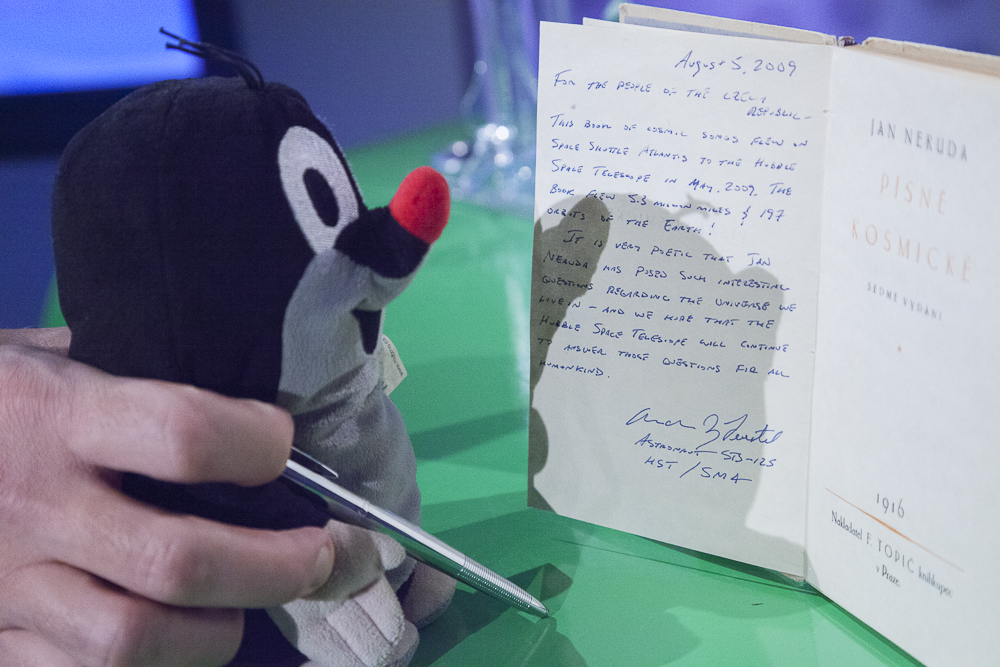 August 5, 2009
FOR THE PEOPLE OF THE CZECH
REPUBLIC -
THIS BOOK OF COSMIC SONGS FLEW ON
SPACE SHUTTLE ATLANTIS TO THE HUBBLE
SPACE TELESCOPE IN MAY, 2009. THE
BOOK FLEW 5.3 MILLION MILES & 197
ORBITS OF THE EARTH!
IT IS VERY POETIC THAT JAN
NERUDA HAS POSED SUCH INTERESTING
QUESTIONS REGARDING THE UNIVERSE WE
LIVE IN - AND WE HOPE THAT THE
HUBBLE SPACE TELESCOPE WILL CONTINUE
TO ANSWER THOSE QUESTIONS FOR ALL
HUMANKIND.
ASTRONAUT STS-125
HST / SMA
JAN NERUDA
PÍSNĚ
KOSMICKÉ
SEDMÉ VYDÁNÍ
1916
Nakladatel F. TOPIČ knihkupec
v Praze.